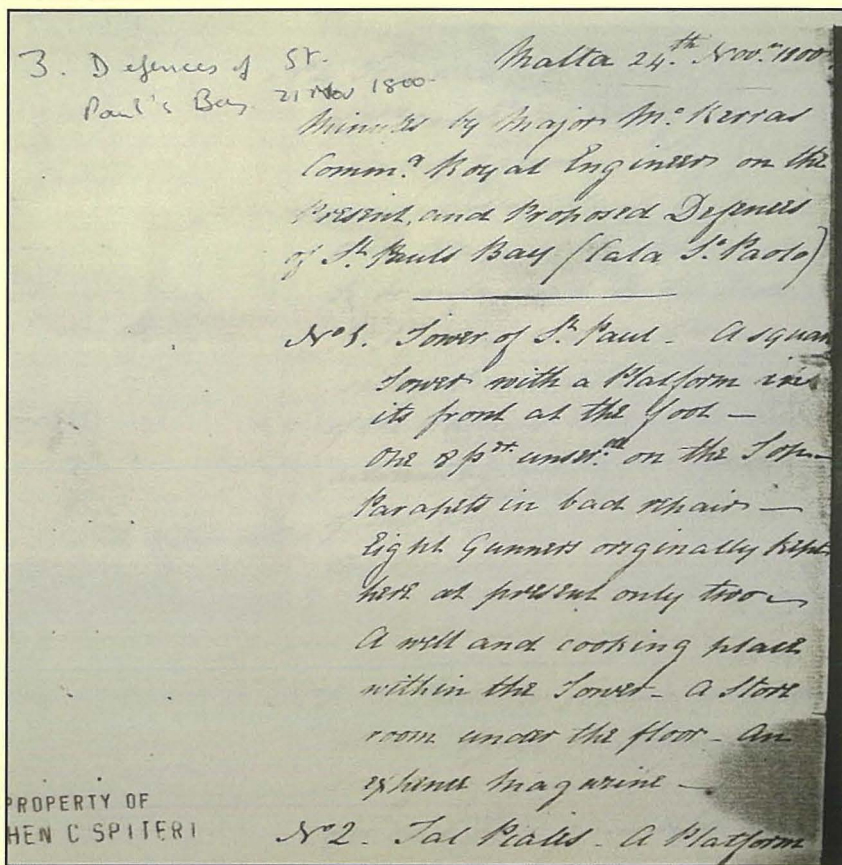 3. Defences of St.
Paul's Bay 21 Nov 1800
Malta 24th Novr. 1800
Minutes by Major Mc.Kerras
Commg. Royal Engineers on the
Present, and Proposed Defences
of St. Pauls Bay (Cala Sn. Paolo)
No 1. Tower of St. Paul - A square
Tower with a Platform in
its front at the foot -
One 8 pdr. unserble. on the Top -
Parapets in bad repair -
Eight Gunners originally kept
here at present only two -
A well and cooking place
within the Tower - A Store
room under the floor - An
expence Magazine -
No 2. Tal A Platform
PROPERTY OF
HEN C SPITERI